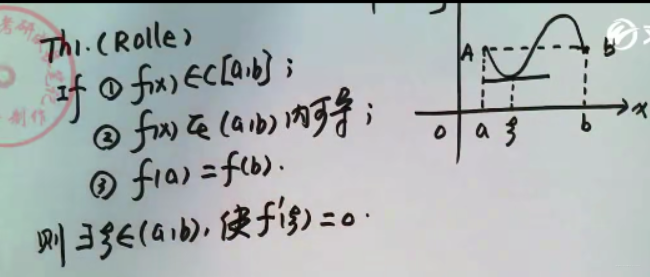 Th1. (Rolle)
If ① f(x)∈C[a,b];
② f(x)在(a,b)内可导;
③ f(a)=f(b).
则∃ξ∈(a,b),使f'(ξ)=0.
A
B
0 a ξ b x
制作